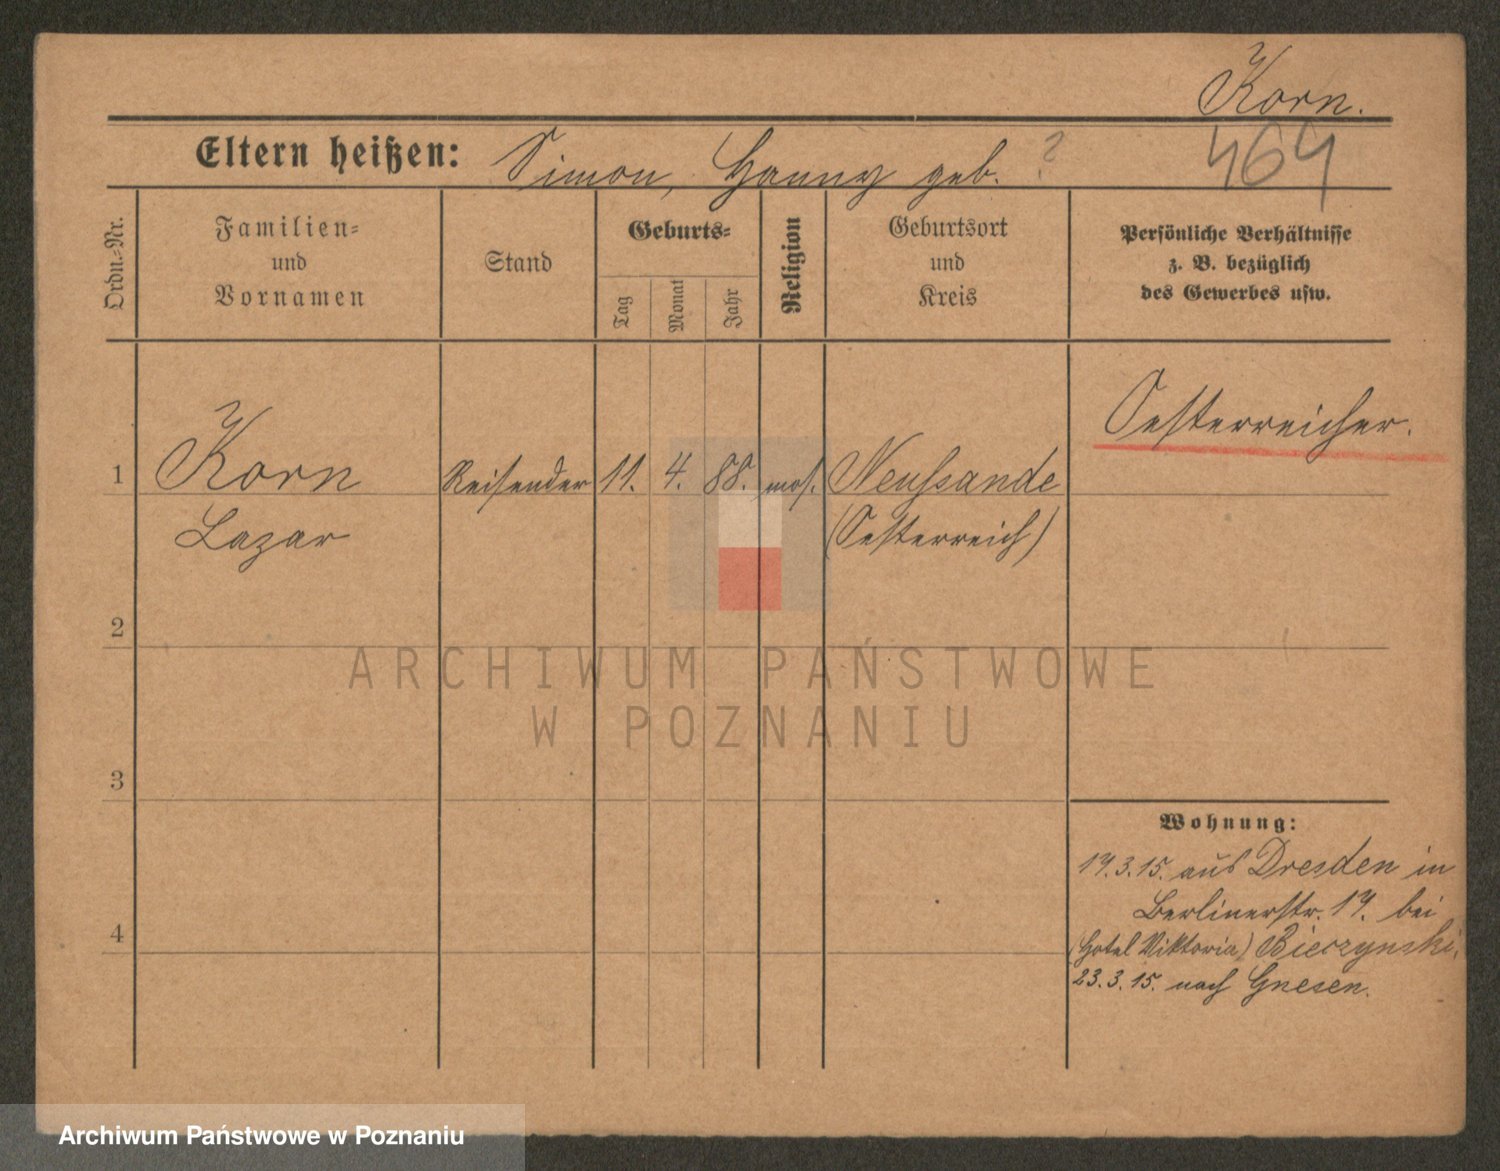 Korn.
464
Eltern heißen: Simon, Hanny geb. ?
Ordn.=Nr.
Familien=
und
Vornamen
Stand
Geburts=
Tag
Monat
Jahr
Religion
Geburtsort
und
Kreis
Persönliche Verhältnisse
z. B. bezüglich
des Gewerbes usw.
Oesterreicher.
1 Korn Reisender 11. 4. 88. mos. Neussande
Lazar (Oesterreich)
2
3
4
Wohnung:
17.3.15. aus Dresden in
Berlinerstr. 17. bei
(Hotel Viktoria) Bieczynski.
23.3.15. nach Gnesen.
ARCHIWUM PAŃSTWOWE
W POZNANIU
Archiwum Państwowe w Poznaniu